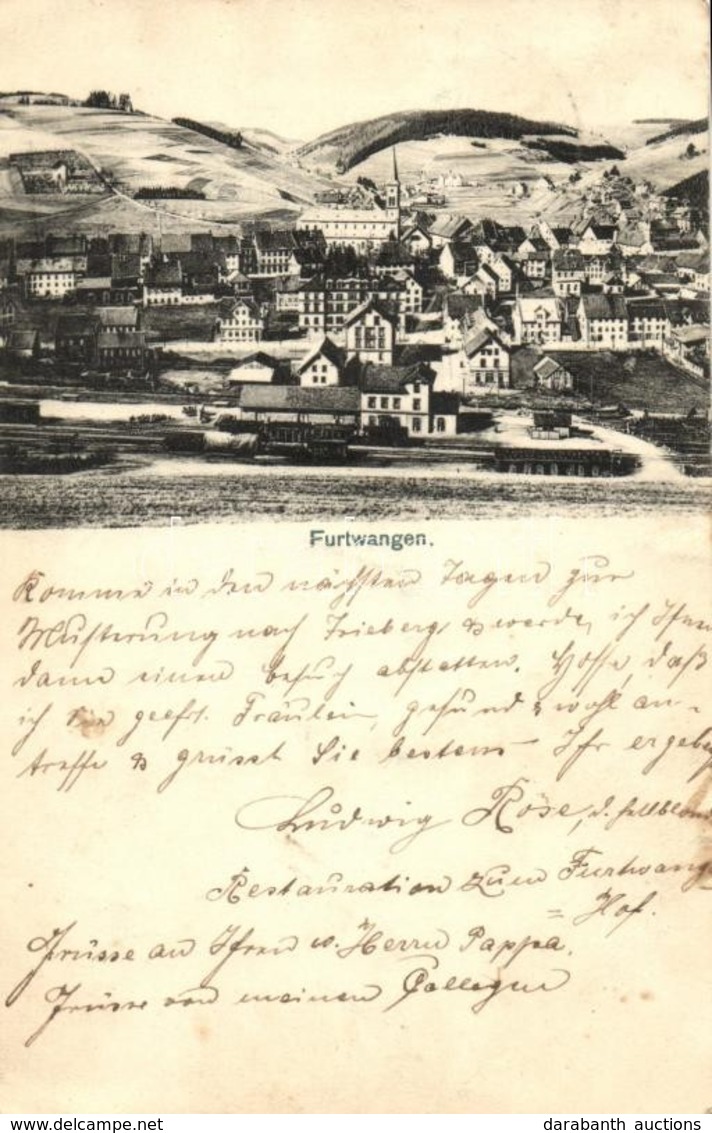 Furtwangen.
Komme in den nächsten Tagen zur
Musterung nach Trieberg & werde, ich Ihnen
dann einen Besuch abstatten. Hoffe, daß
ich Sie geehrt. Fräulein, gesund & wohl an-
treffe & grüsst Sie bestens Ihr ergeb
Ludwig Röse, d. hellblond
Restauration zum Furtwang
= Hof.
Grüsse an Ihren w. Herrn Pappa.
Grüsse von meinen Collegen
www.delcampe.net
darabanth auctions